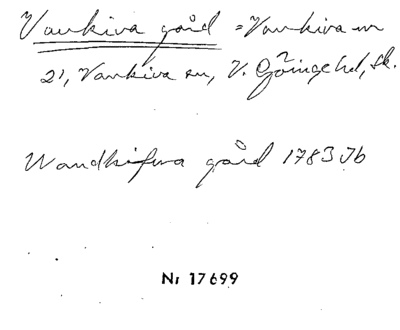 Vankiva gård = Vankiva nr
21, Vankiva sn, V. Göinge hd, Sk.
Wandkifwa gård 1783 Jb
Nr 17699